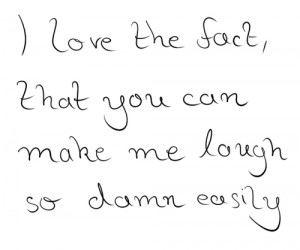 I love the fact,
that you can
make me laugh
so damn easily